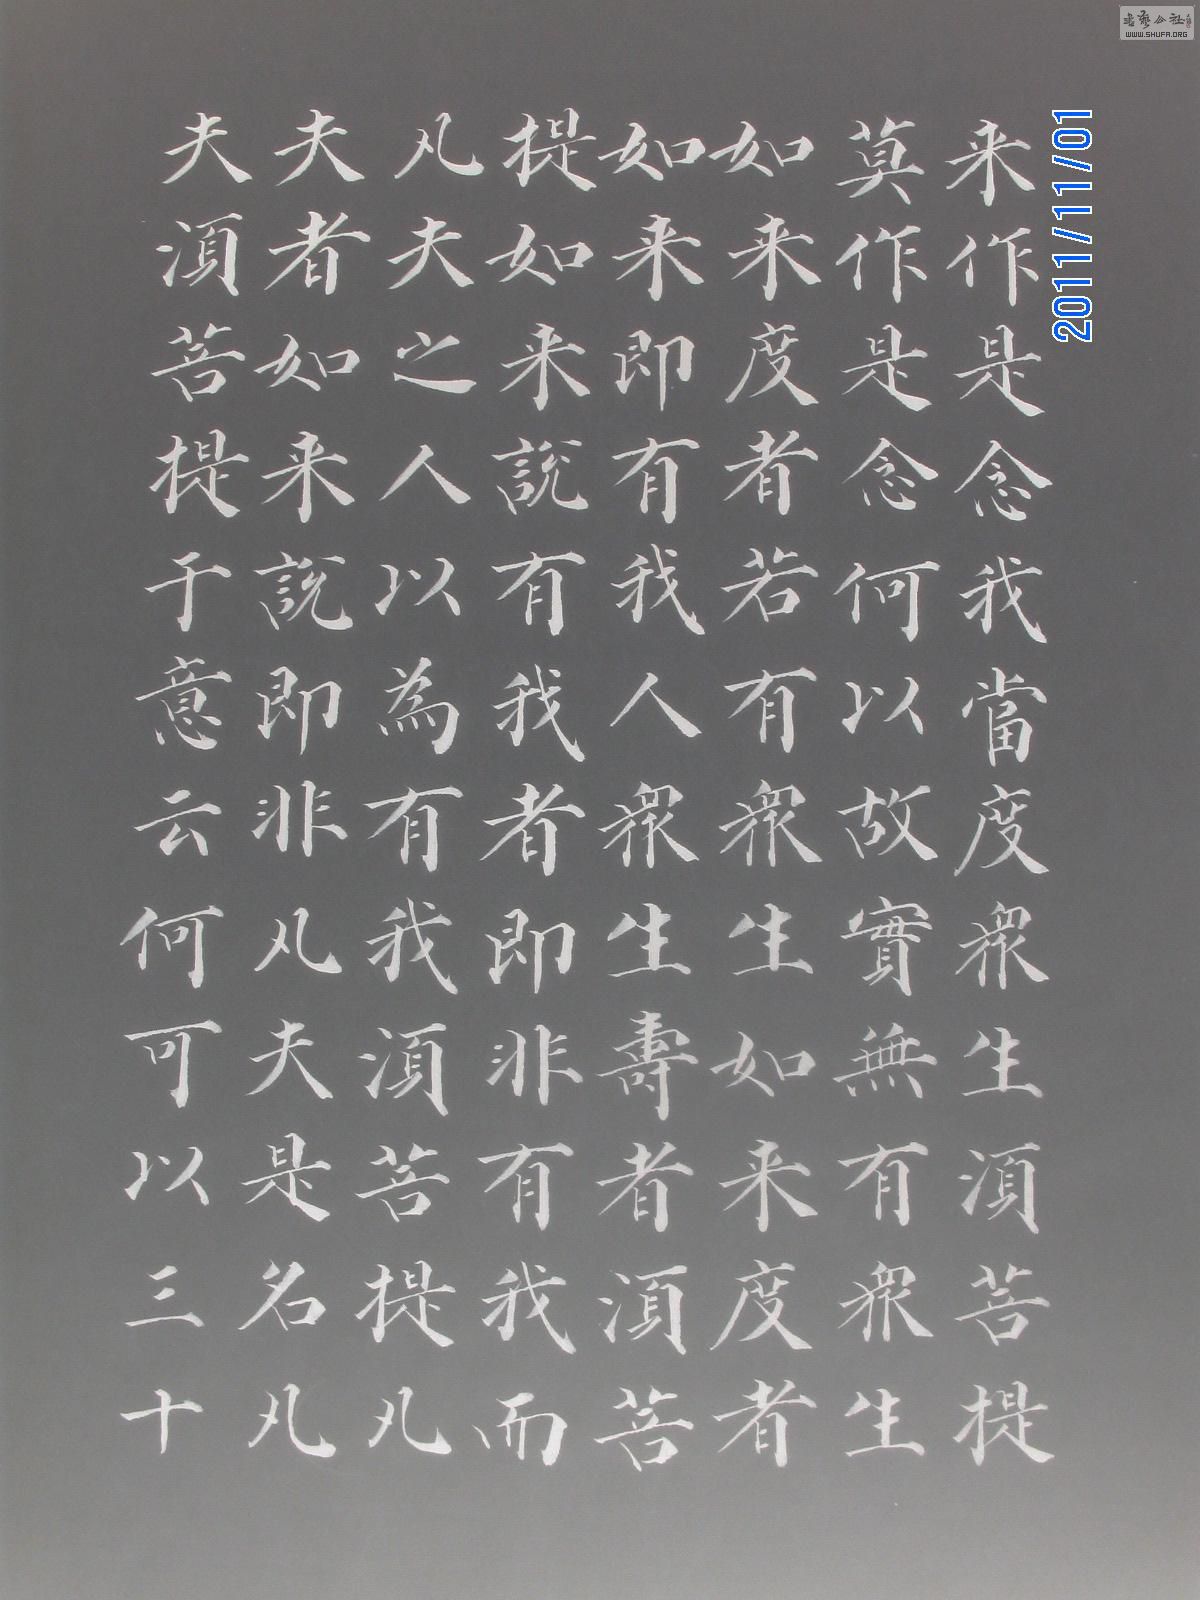 来作是念我當度衆生須菩提
莫作是念何以故實無有衆生
如来度者若有衆生如来度者
如来即有我人衆生壽者須菩
提如来說有我者即非有我而
凡夫之人以為有我須菩提凡
夫者如来說即非凡夫是名凡
夫須菩提于意云何可以三十
2011/11/01
书艺公社
WWW.SHUFA.ORG